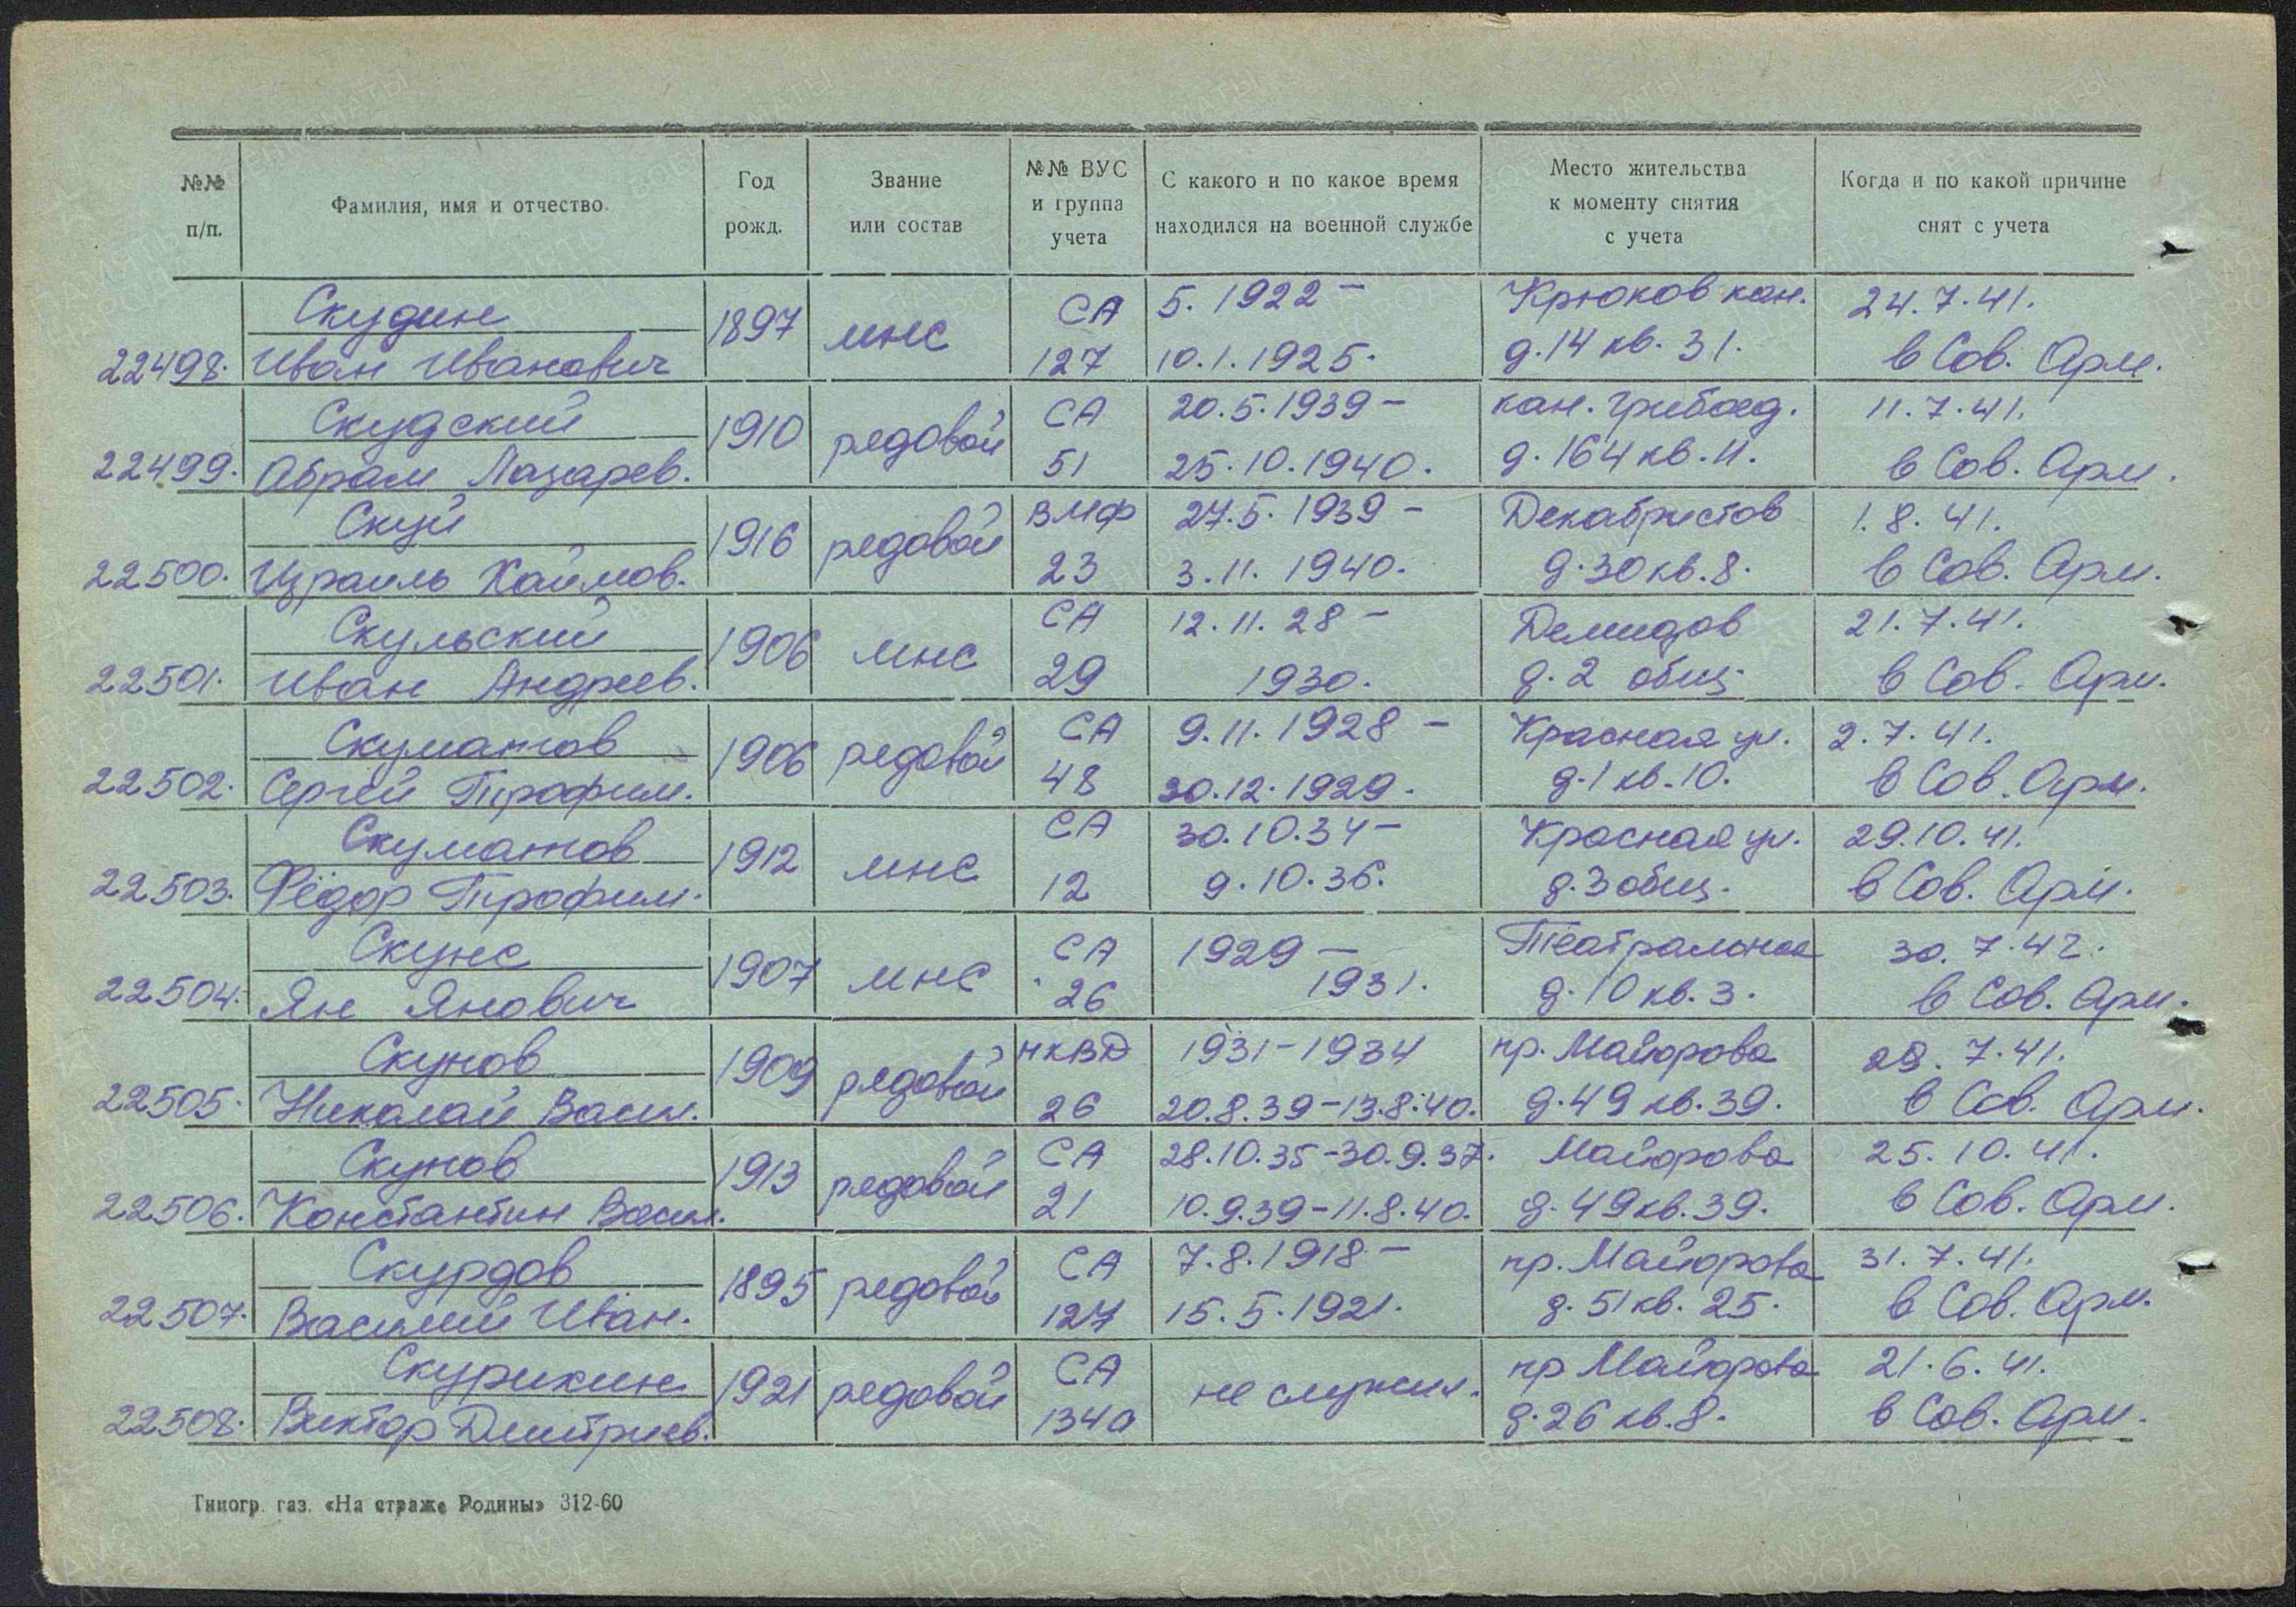 №№ п/п. | Фамилия, имя и отчество | Год рожд. | Звание или состав | №№ ВУС и группа учета | С какого и по какое время находился на военной службе | Место жительства к моменту снятия с учета | Когда и по какой причине снят с учета
Скудин 1897 мнс СА 5.1922 – Крюков кан. 24.7.41.
22498. Иван Иванович 127 10.1.1925. д.14 кв. 31. в Сов. Арм.
Скудский 1910 рядовой СА 20.5.1939 – кан. Грибоед. 11.7.41.
22499. Абрам Лазарев. 51 25.10.1940. д.164 кв.11. в Сов. Арм.
Скуй 1916 рядовой ВМФ 27.5.1939 – Декабристов 1.8.41.
22500. Израиль Хаимов. 23 3.11.1940. д.30 кв.8. в Сов. Арм.
Скульский 1906 мнс СА 12.11.28 – Демидов 21.7.41.
22501. Иван Андреев. 29 1930. д.2 общ. в Сов. Арм.
Скуматов 1906 рядовой СА 9.11.1928 – Красная ул. 2.7.41.
22502. Сергей Трофим. 48 30.12.1929. д.1 кв.10. в Сов. Арм.
Скуматов 1912 мнс СА 30.10.34 – Красная ул. 29.10.41.
22503. Фёдор Трофим. 12 9.10.36. д.3 общ. в Сов. Арм.
Скунс 1907 мнс СА 1929 – Театральная 30.7.42.
22504. Ян Янович 26 1931. д.10 кв.3. в Сов. Арм.
Скунов 1909 рядовой НКВД 1931–1934 пр. Майорова 28.7.41.
22505. Николай Васил. 26 20.8.39–13.8.40. д.49 кв.39. в Сов. Арм.
Скунов 1913 рядовой СА 28.10.35–30.9.37. Майорова 25.10.41.
22506. Константин Васил. 21 10.9.39–11.8.40. д.49 кв.39. в Сов. Арм.
Скурдов 1895 рядовой СА 7.8.1918 – пр. Майорова 31.7.41.
22507. Василий Иван. 127 15.5.1921. д.51 кв. 25. в Сов. Арм.
Скурикин 1921 рядовой СА не служил. пр Майорова 21.6.41.
22508. Виктор Дмитриев. 134а д.26 кв.8. в Сов. Арм.
Типогр. газ. «На страже Родины» 312-60